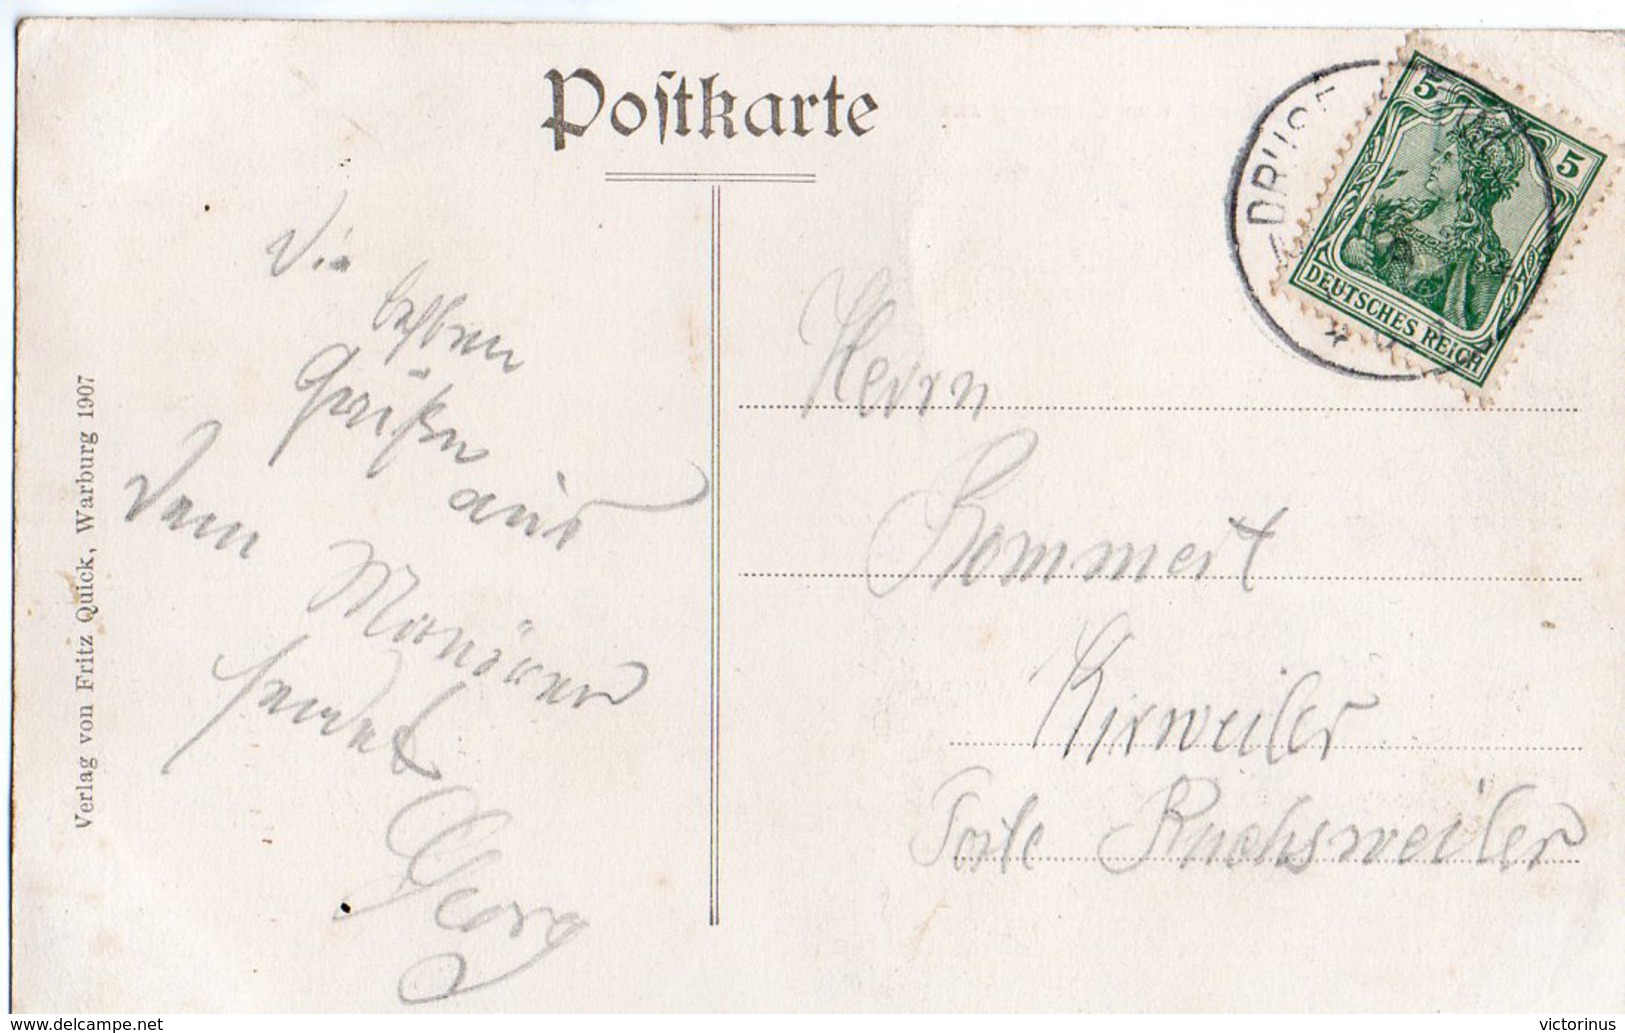 Postkarte
Die
besten
Grüßen
aus
dem
Manöver
sendet
Georg
Herrn
Bommert
Kirweiler
Ruchsweiler
5
5
DEUTSCHES REICH
DRUSE
Verlag von Fritz Quick, Warburg 1907
www.delcampe.net
victorinus